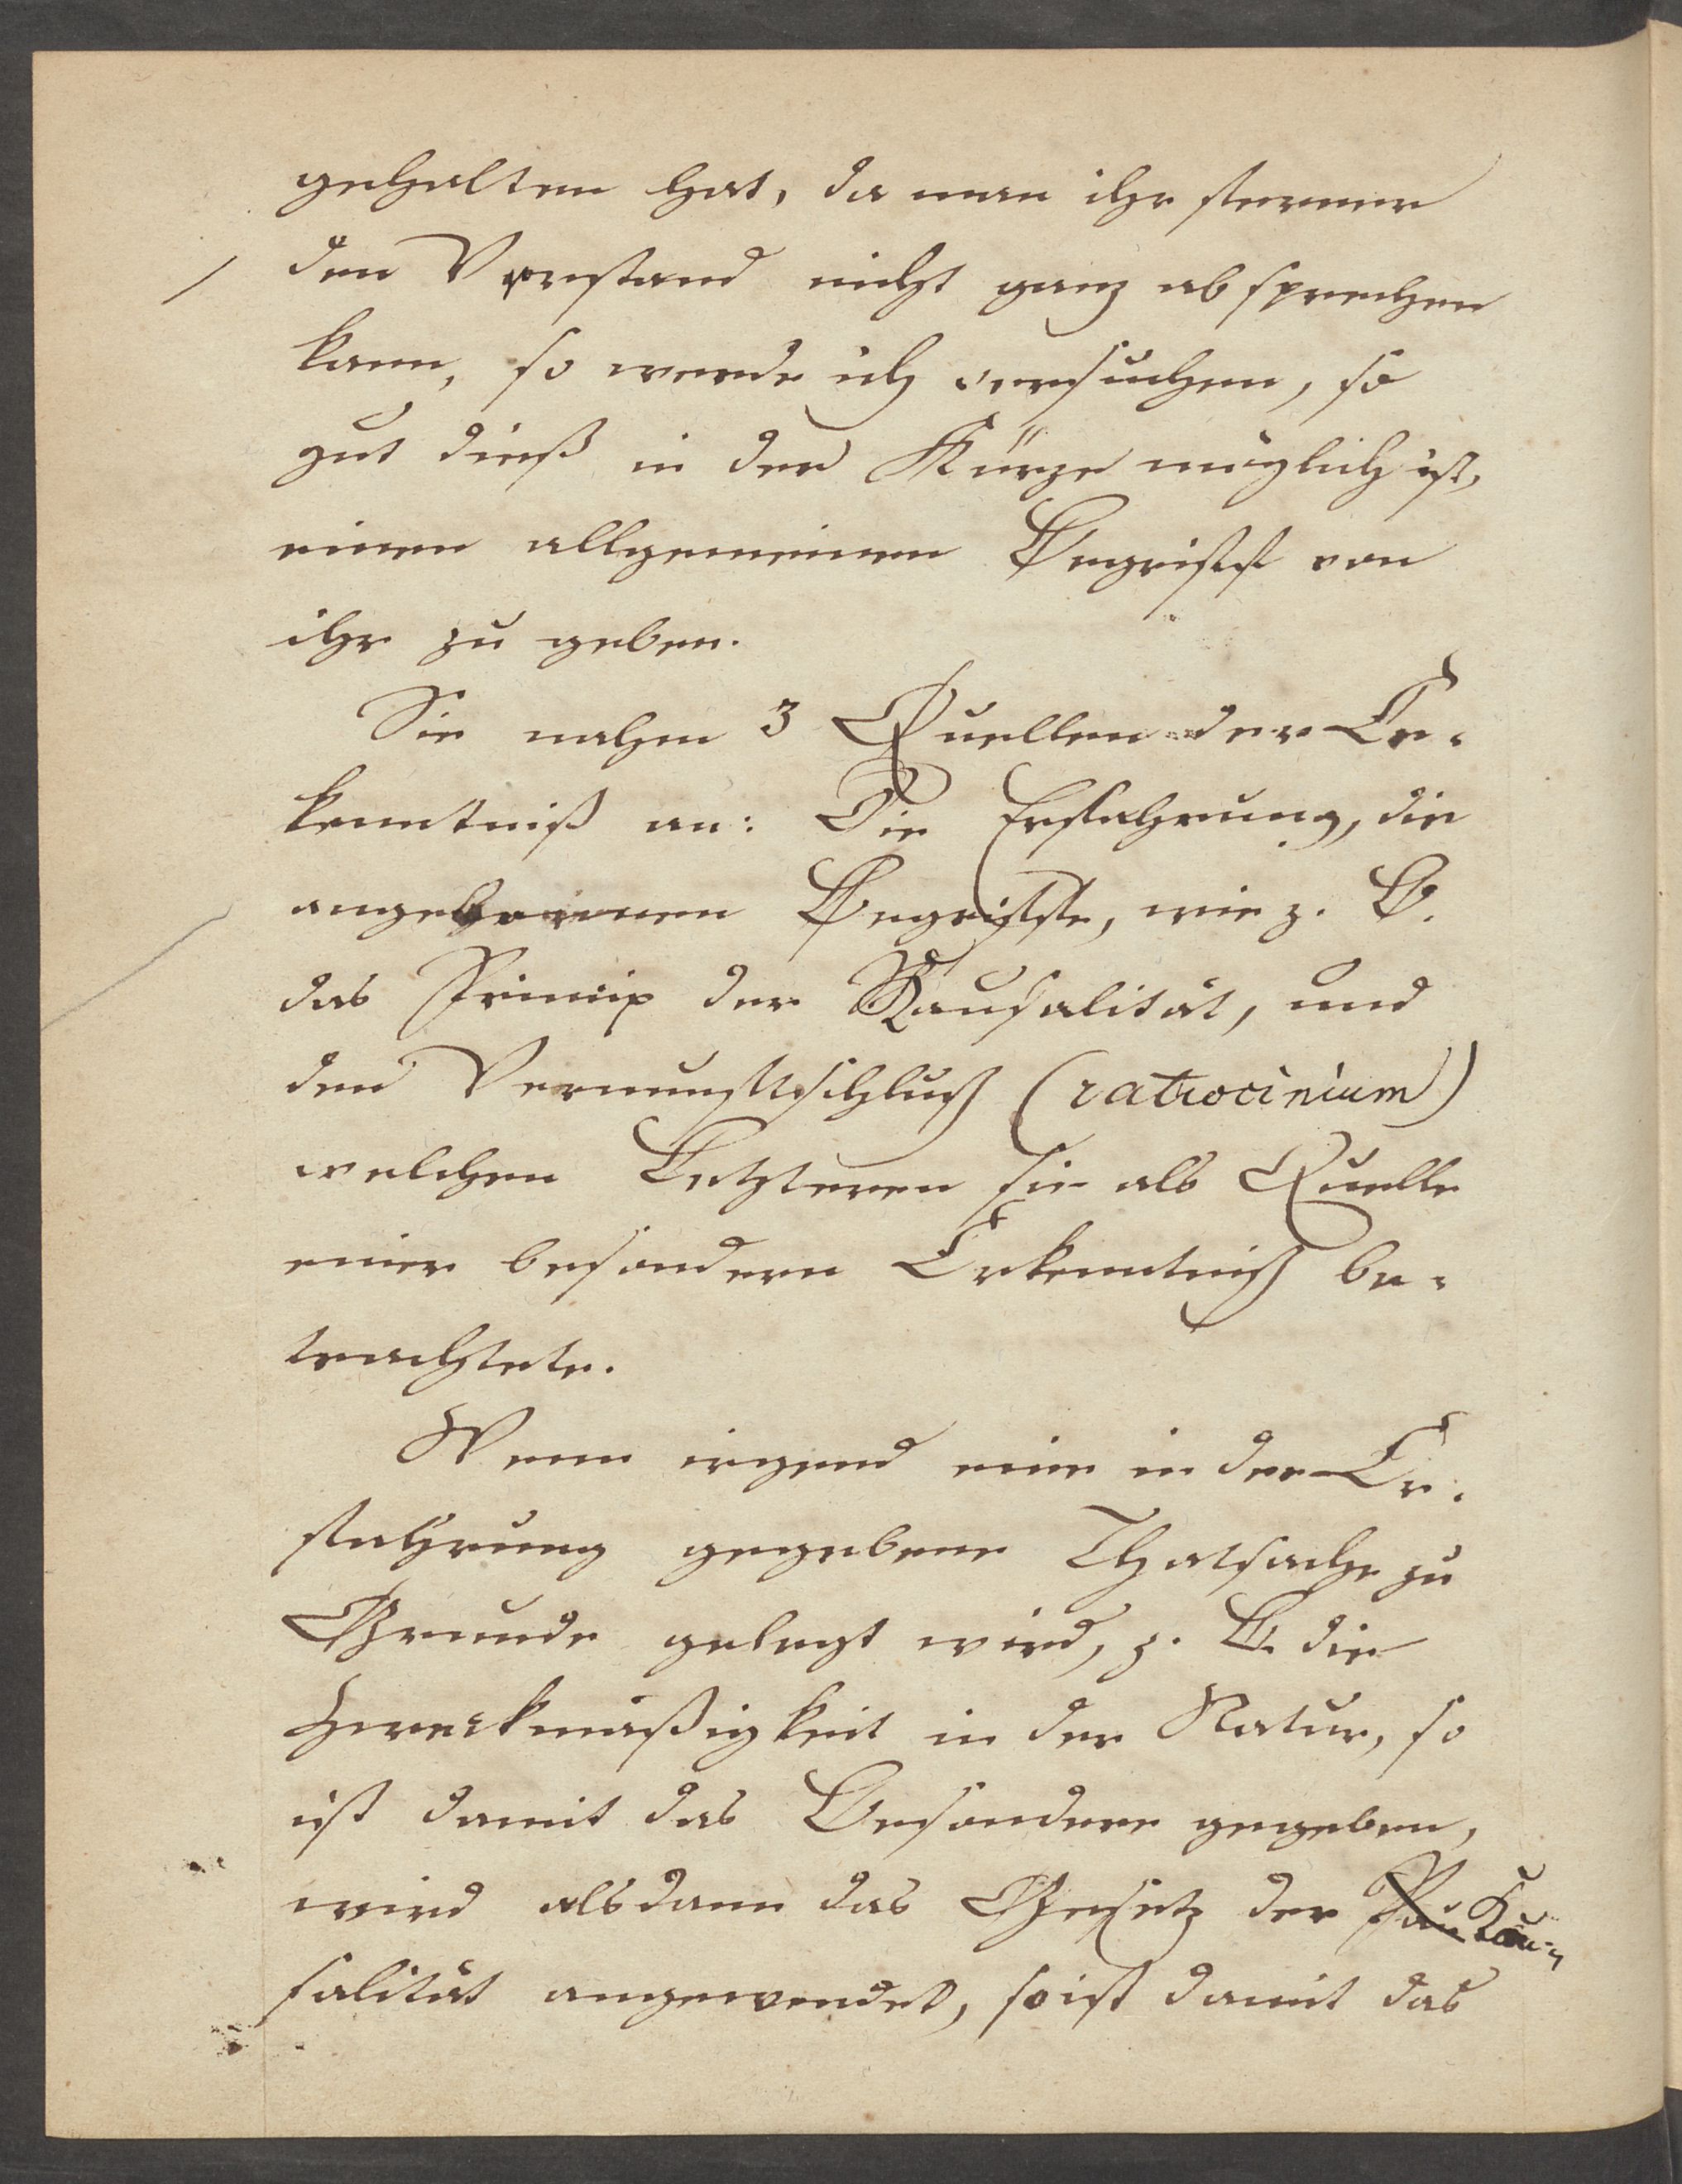 gehalten hat, da man ihr ferner
den Verstand nicht ganz absprechen
kann, so werde ich versuchen, so
gut dieß in der Kürze möglich ist,
einen allgemeinen Begriff von
ihr zu geben.
Sie nahm 3 Quellen der Er-
kenntniß an: Die Erfahrung, die
angebornen Begriffe, wie z. B.
das Princip der Kausalität, und
den Vernunftschluß (ratiocinium)
welchen Letzteren sie als Quelle
einer besondern Erkenntniß be-
trachtete.
Wenn irgend eine in der Er-
fahrung gegebene Thatsache zu
Grunde gelegt wird, z. B. die
Zweckmäßigkeit in der Natur, so
ist damit das Besondere gegeben,
wird alsdann das Gesetz der Kau-
salität angewendet, so ist damit das